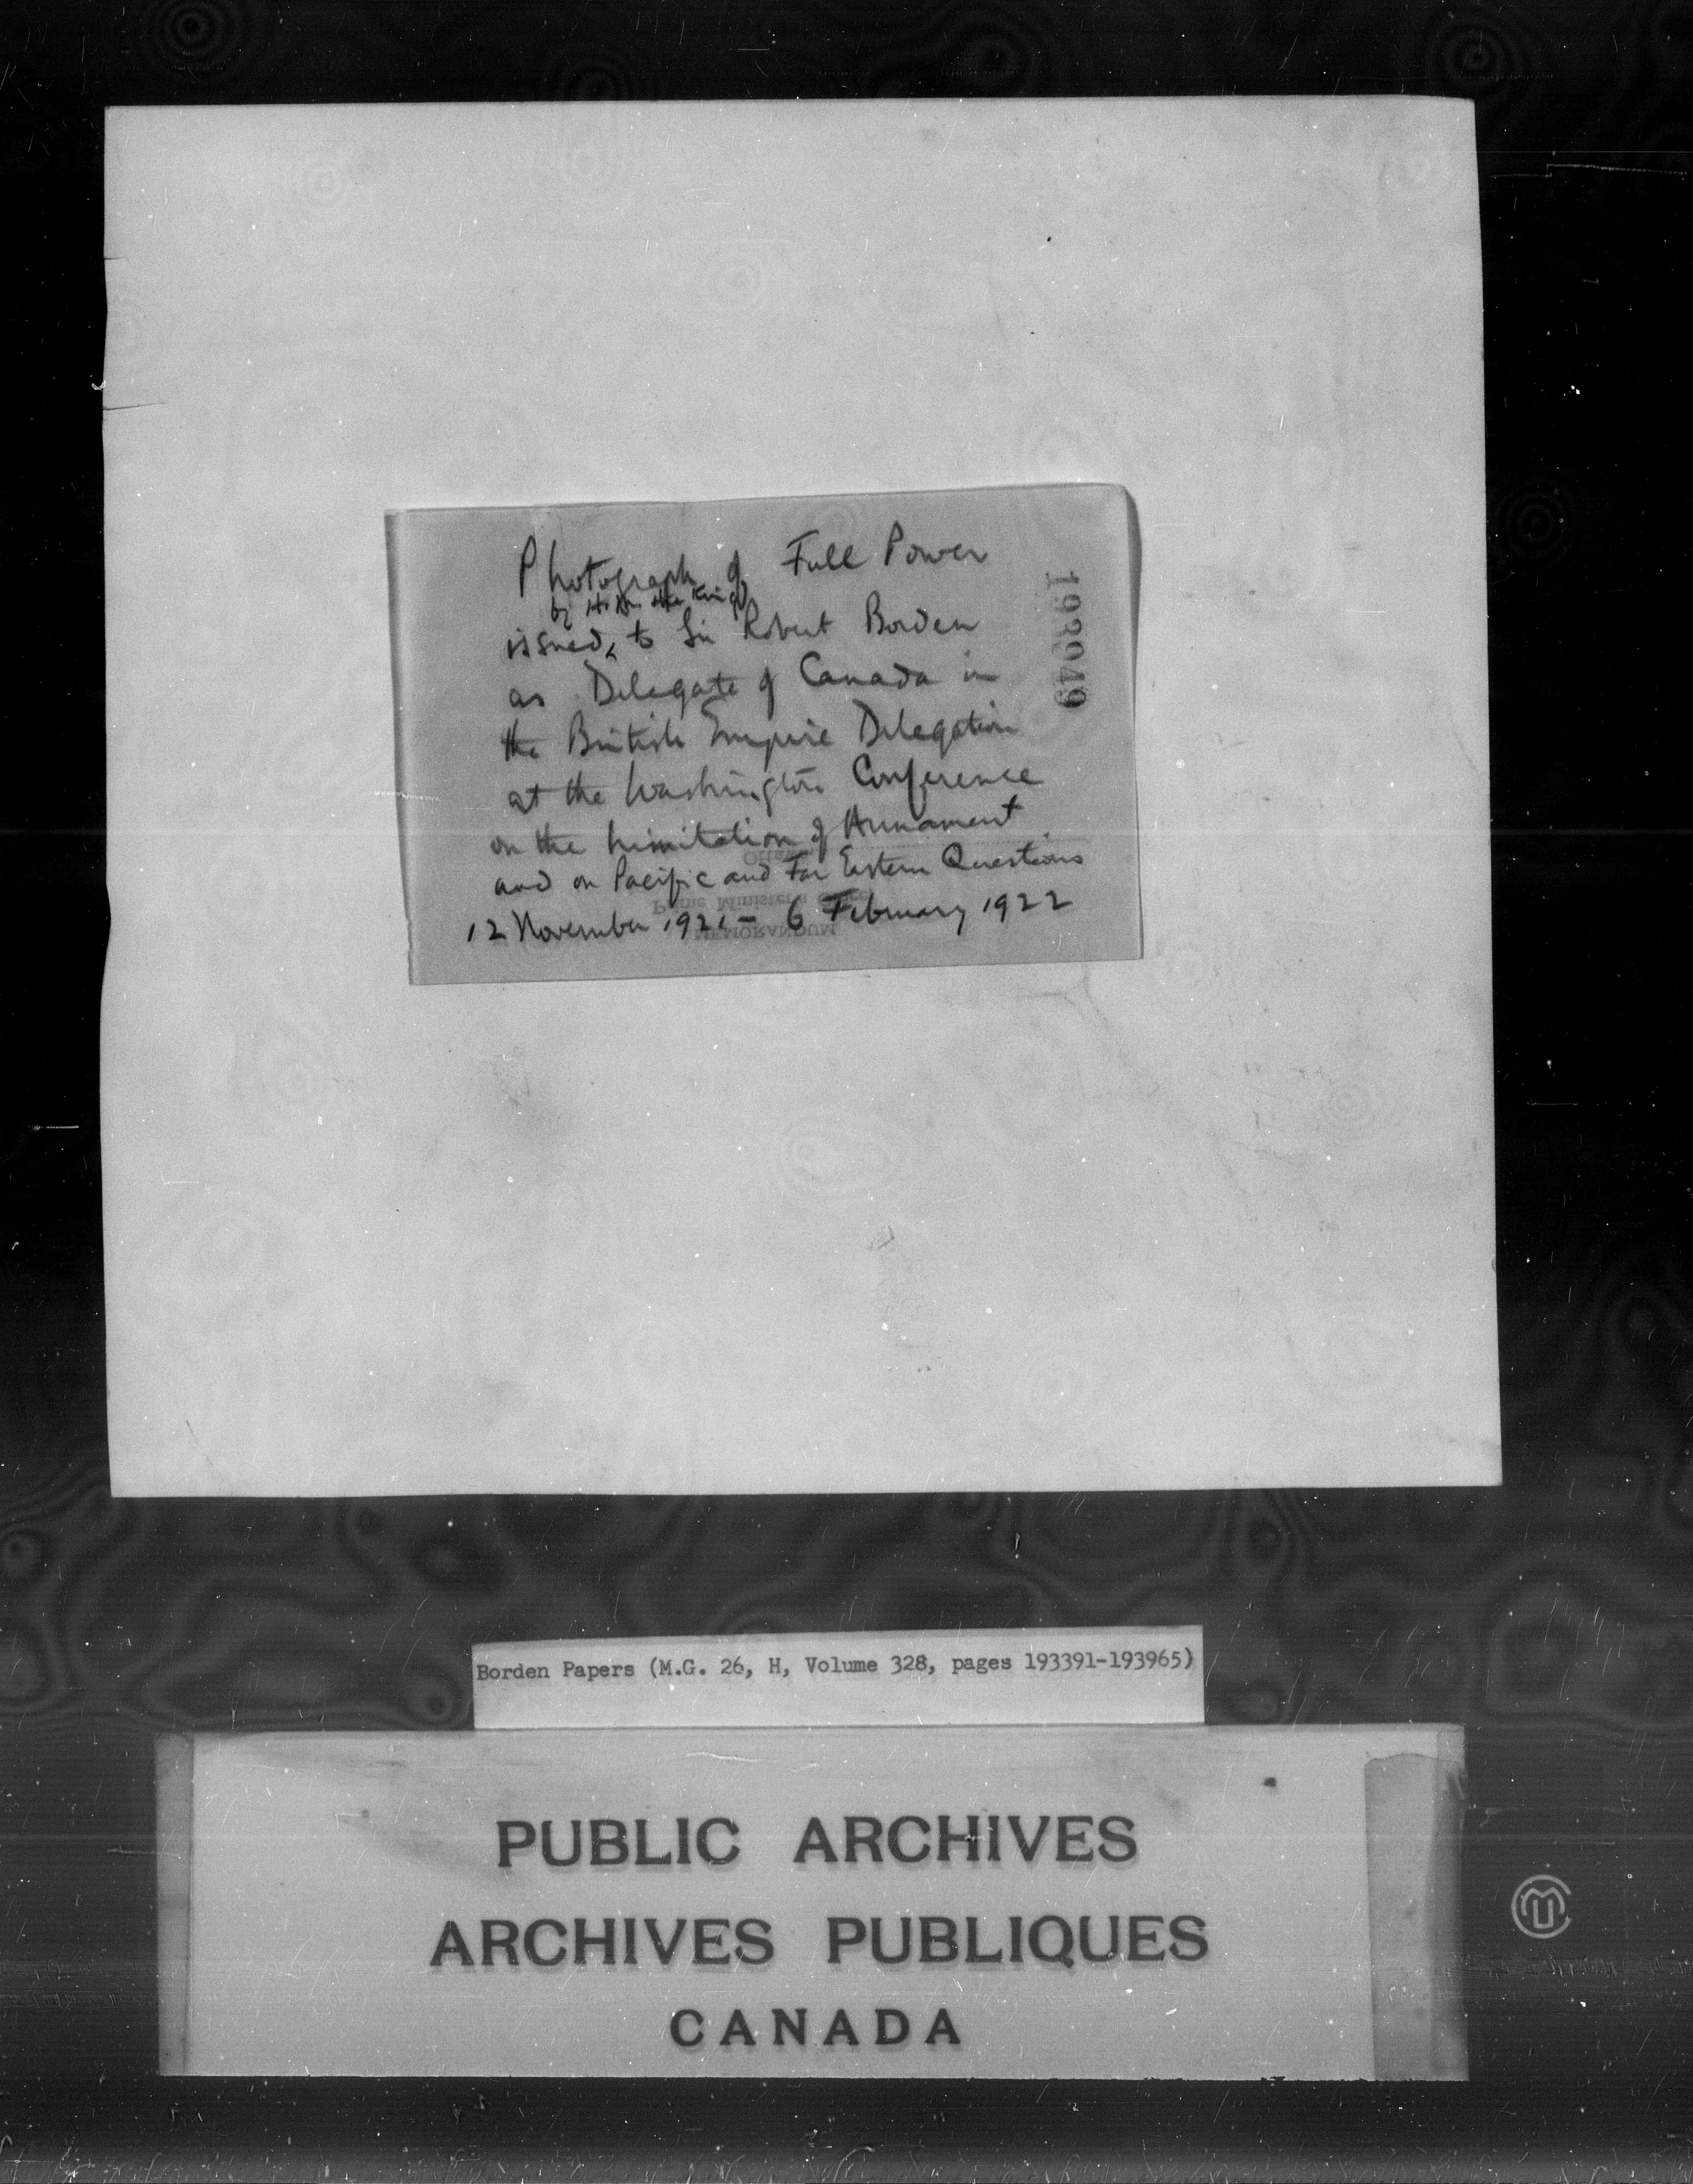 Photograph of Full Power
by H.M. the King
issued ‸ to Sir Robert Borden
as Delegate of Canada in
the British Empire Delegation
at the Washington Conference
on the Limitation of Armament
and on Pacific and Far Eastern Questions
12 November 1921 - 6 February 1922
193949
Ottawa
Prime Minister's Office
MEMORANDUM
Borden Papers (M.G. 26, H, Volume 328, pages 193391-193965)
PUBLIC ARCHIVES
ARCHIVES PUBLIQUES
CANADA